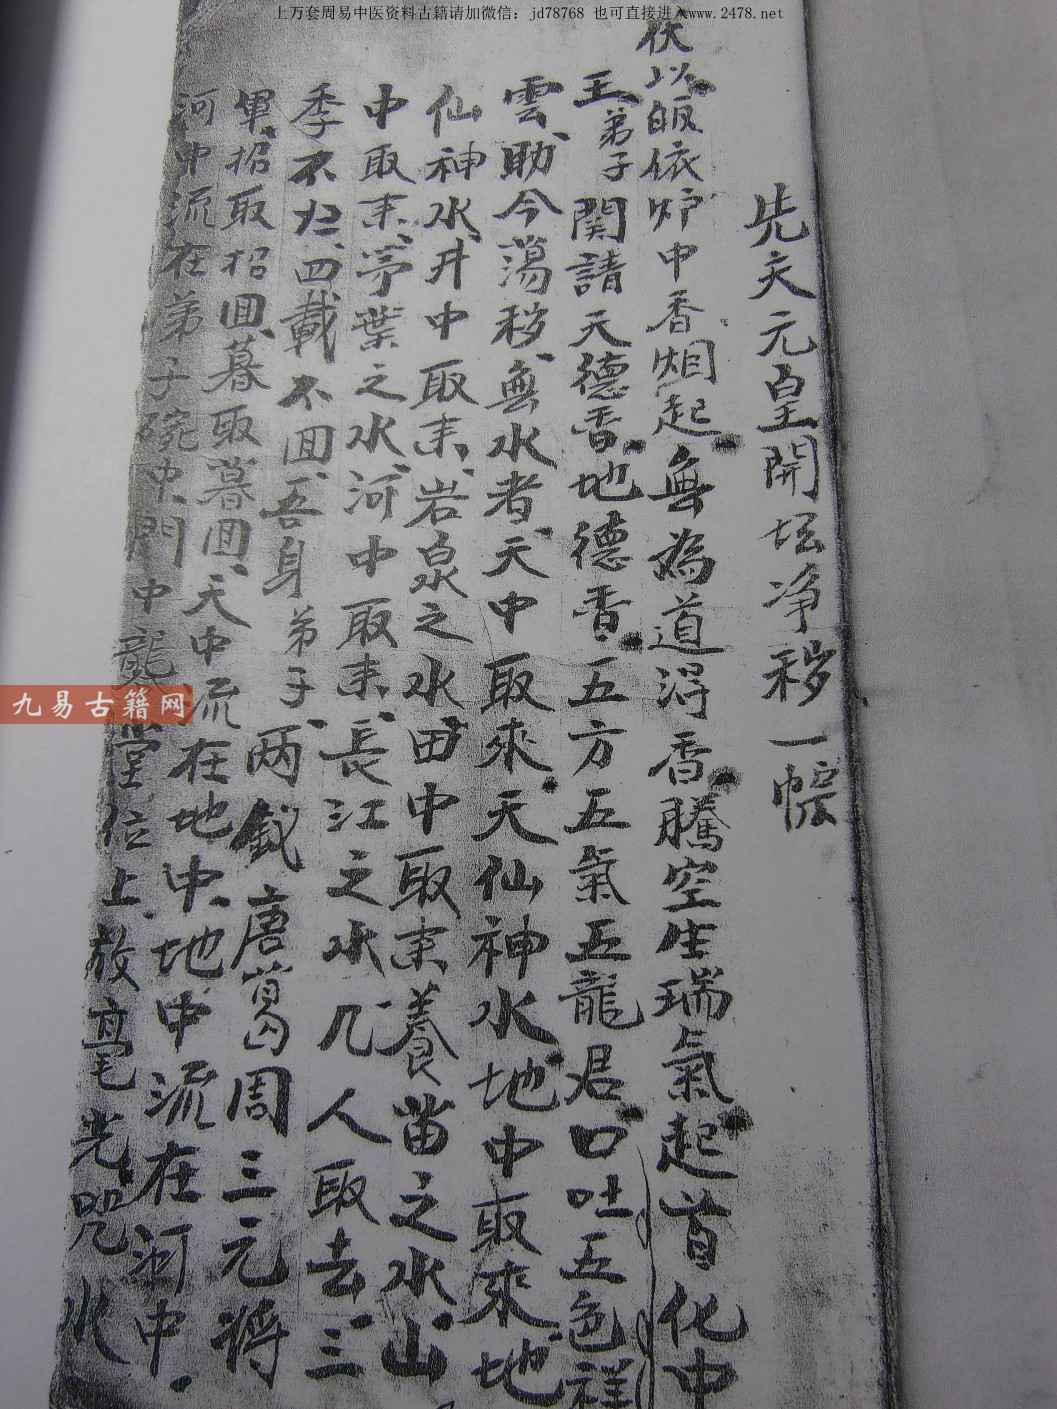 上万套周易中医资料古籍请加微信：jd78768 也可直接进入www.2478.net
先天元皇開坛净秽一幉
伏以皈依炉中香烟起無為道得香騰空生瑞氣起首化中
王弟子関請天德香地德香五方五氣五龍君口吐五色祥
雲助今蕩秽無水者天中取來天仙神水地中取來地
仙神水井中取来岩泉之水田中取来養苗之水山
中取来茅葉之水河中取来長江之水几人取去三
季不归四載不囬吾身弟子两釴唐葛周三元将
軍招取招囬暮取暮囬天中流在地中地中流在河中
河中流在弟子碗中門中龍堂位上放毫光咒水
九易古籍网